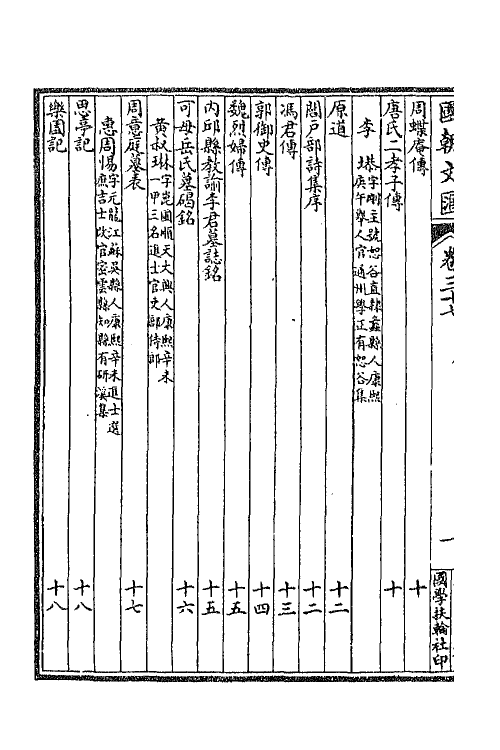 國朝文匯 卷三十七 一 國學扶輪社印
周蝶庵傳 十
唐氏二孝子傳 十
李 塨字剛主號恕谷直隸蠡縣人康熙庚午舉人官通州學正有恕谷集
原道 十二
閻戶部詩集序 十二
馮君傳 十三
郭御史傳 十四
魏烈婦傳 十五
內邱縣教諭李君墓誌銘 十五
可母岳氏墓碣銘 十六
黃叔琳 字崑圃順天大興人康熙辛未一甲三名進士官吏部侍郎
周意庭墓表 十七
惠周惕 字元龍江蘇吳縣人康熙辛未進士選庶吉士改官密雲縣知縣有研溪集
思亭記 十八
樂園記 十八